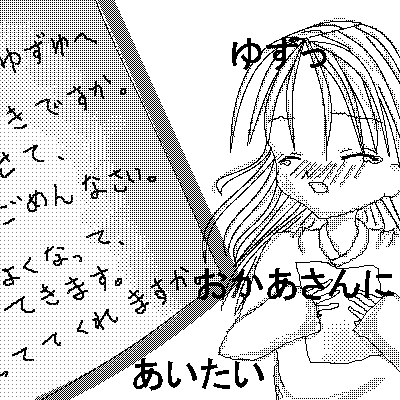 ゆずゆへ
きですか。
さて、
ごめんなさい。
よくなって、
てきます。
っててくれますか
ゆずっ
おかあさんに
あいたい